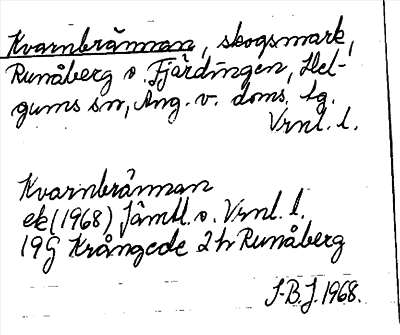 Kvarnbrännan, skogsmark,
Runåberg o. Fjärdingen, Hel-
gums sn, Ång. v. doms. lg.
Vrnl. l.
Kvarnbrännan
ek (1968) Jämtl. o. Vrnl. l.
19G Krångede 2h Runåberg
J-B.J. 1968.